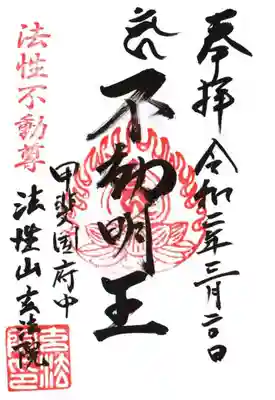 奉拝
令和二年三月二〇日
不動明王
甲斐国府中
法性山玄法院
法性不動尊